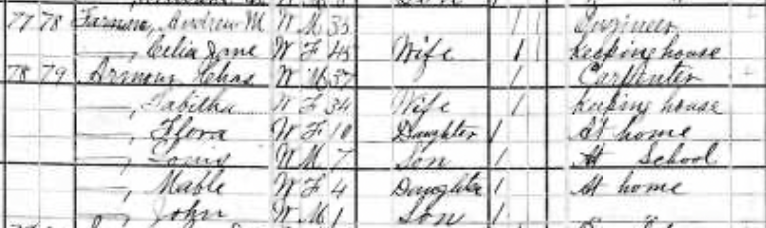 77 78 Farman, Andrew M W M 35 1 Engineer
—, Celia Jane W F 45 Wife 1 keeping house
78 79 Armour Chas W M 37 1 Carpenter
—, Tabitha W F 34 Wife 1 keeping house
—, Flora W F 10 Daughter 1 At home
—, Louis W M 7 Son 1 At School
—, Mable W F 4 Daughter 1 At home
—, John W M 1 Son 1